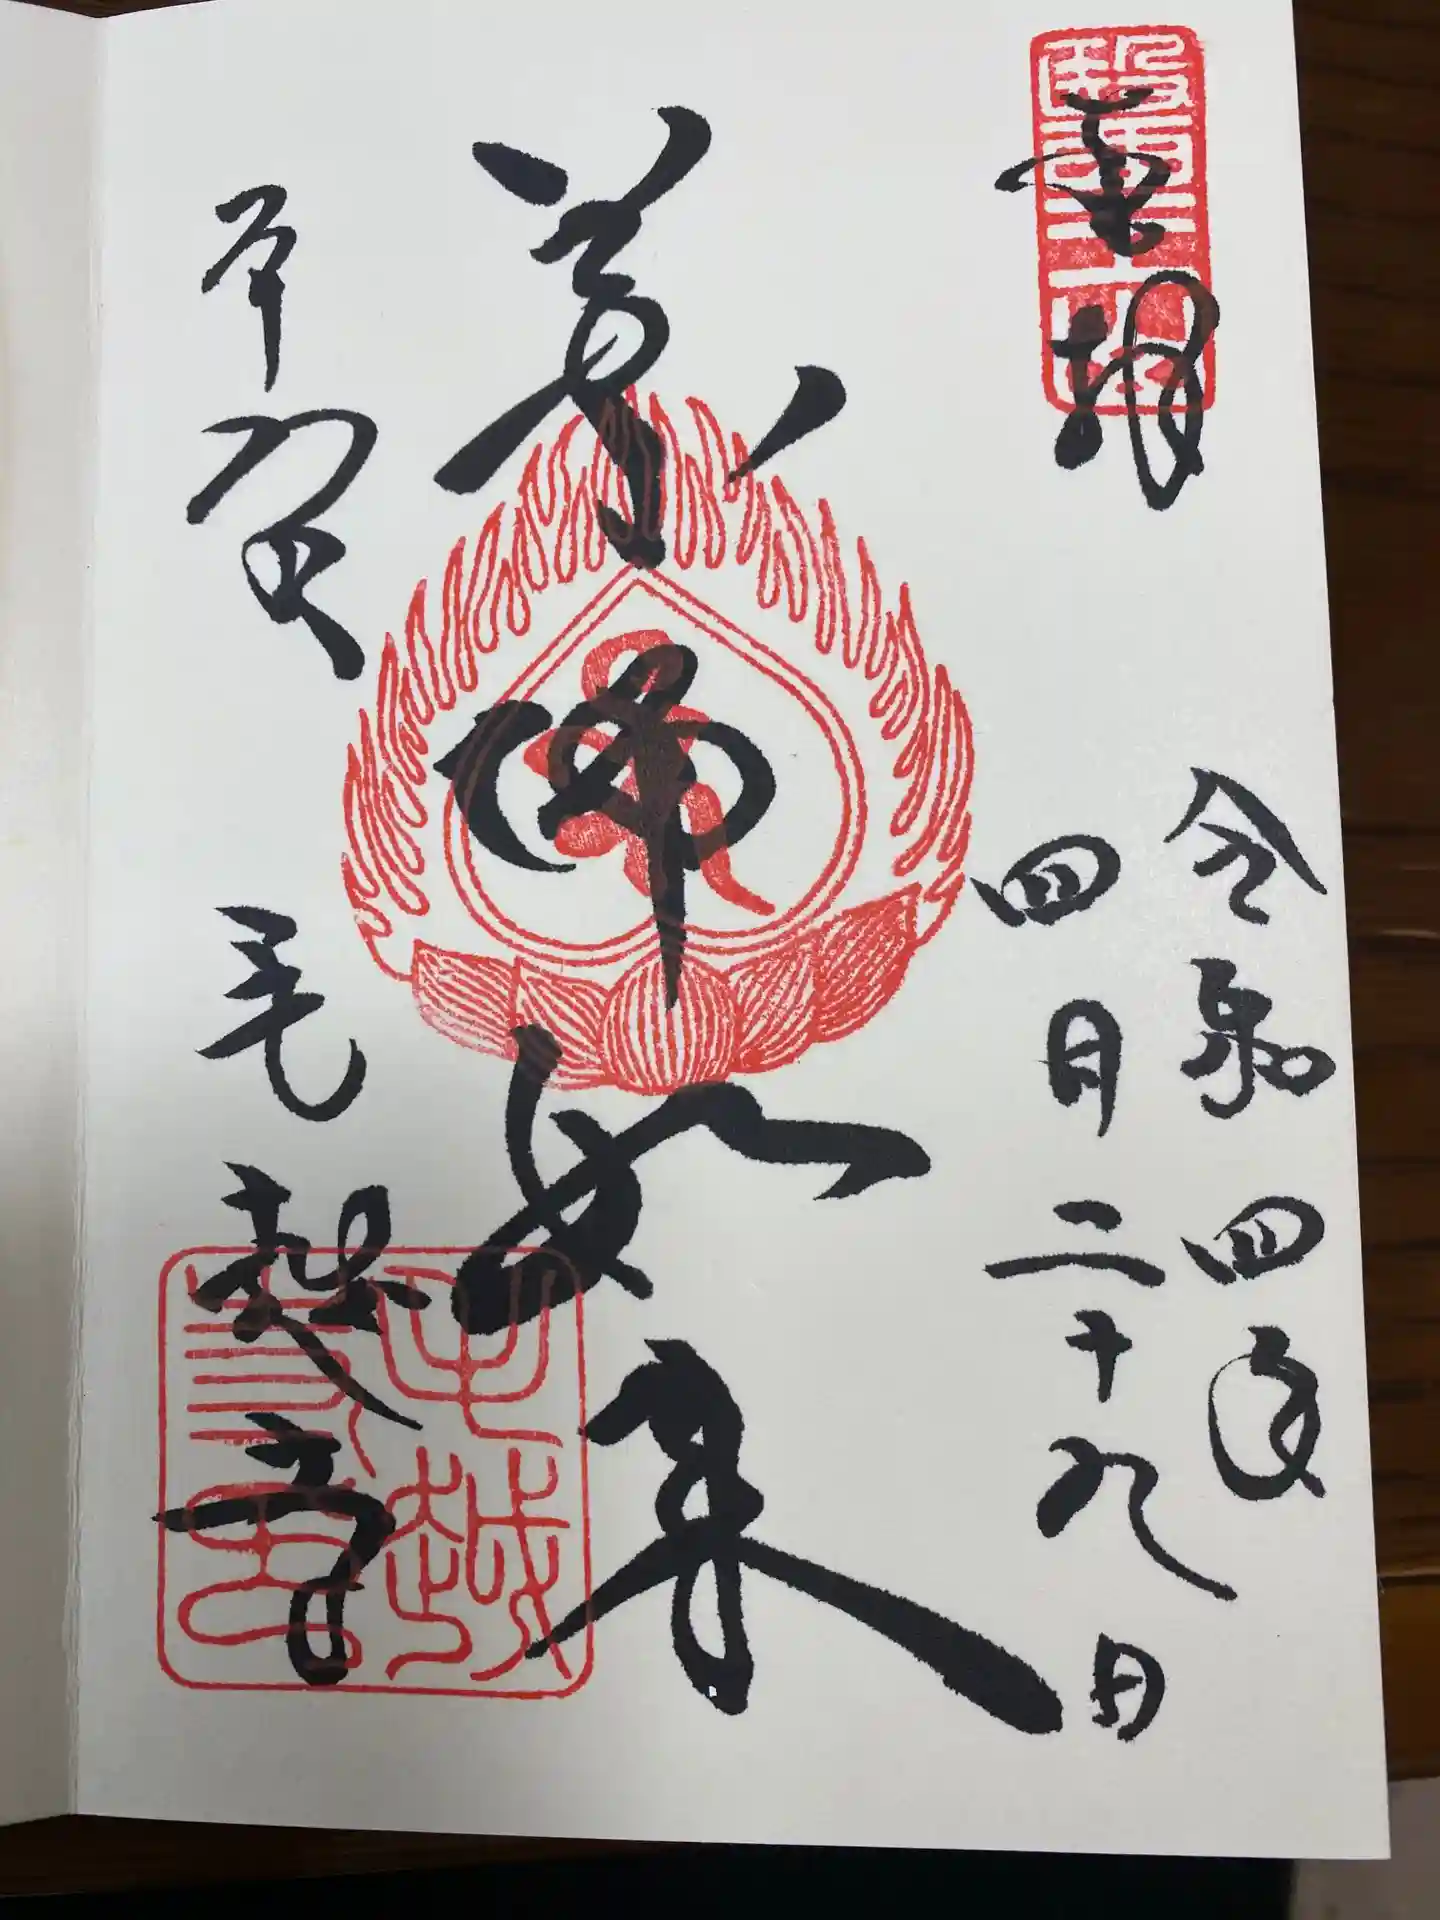 奉拝
醫王山
令和四年
四月二十九日
薬師如来
平泉
毛越寺
毛越寺印